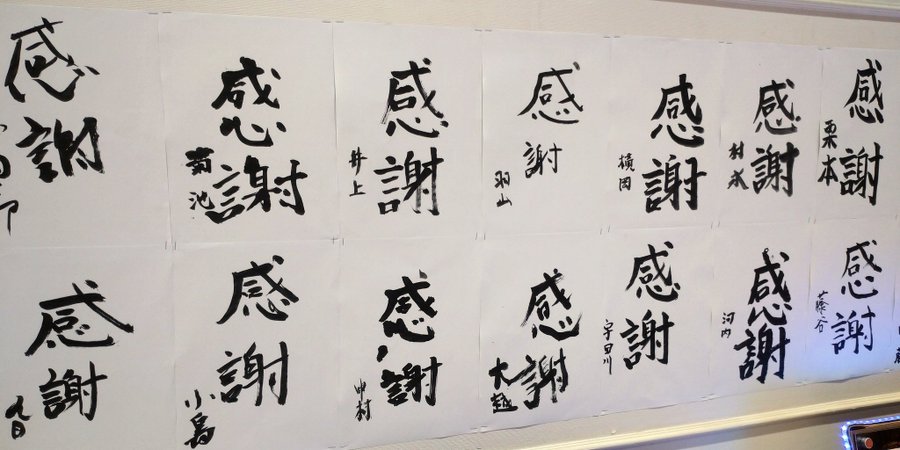 感謝
感謝
菊池
感謝
井上
感謝
羽山
感謝
横田
感謝
村水
感謝
栗本
感謝
感謝
小島
感謝
中村
感謝
大越
感謝
宇田川
感謝
河内
感謝
藤谷